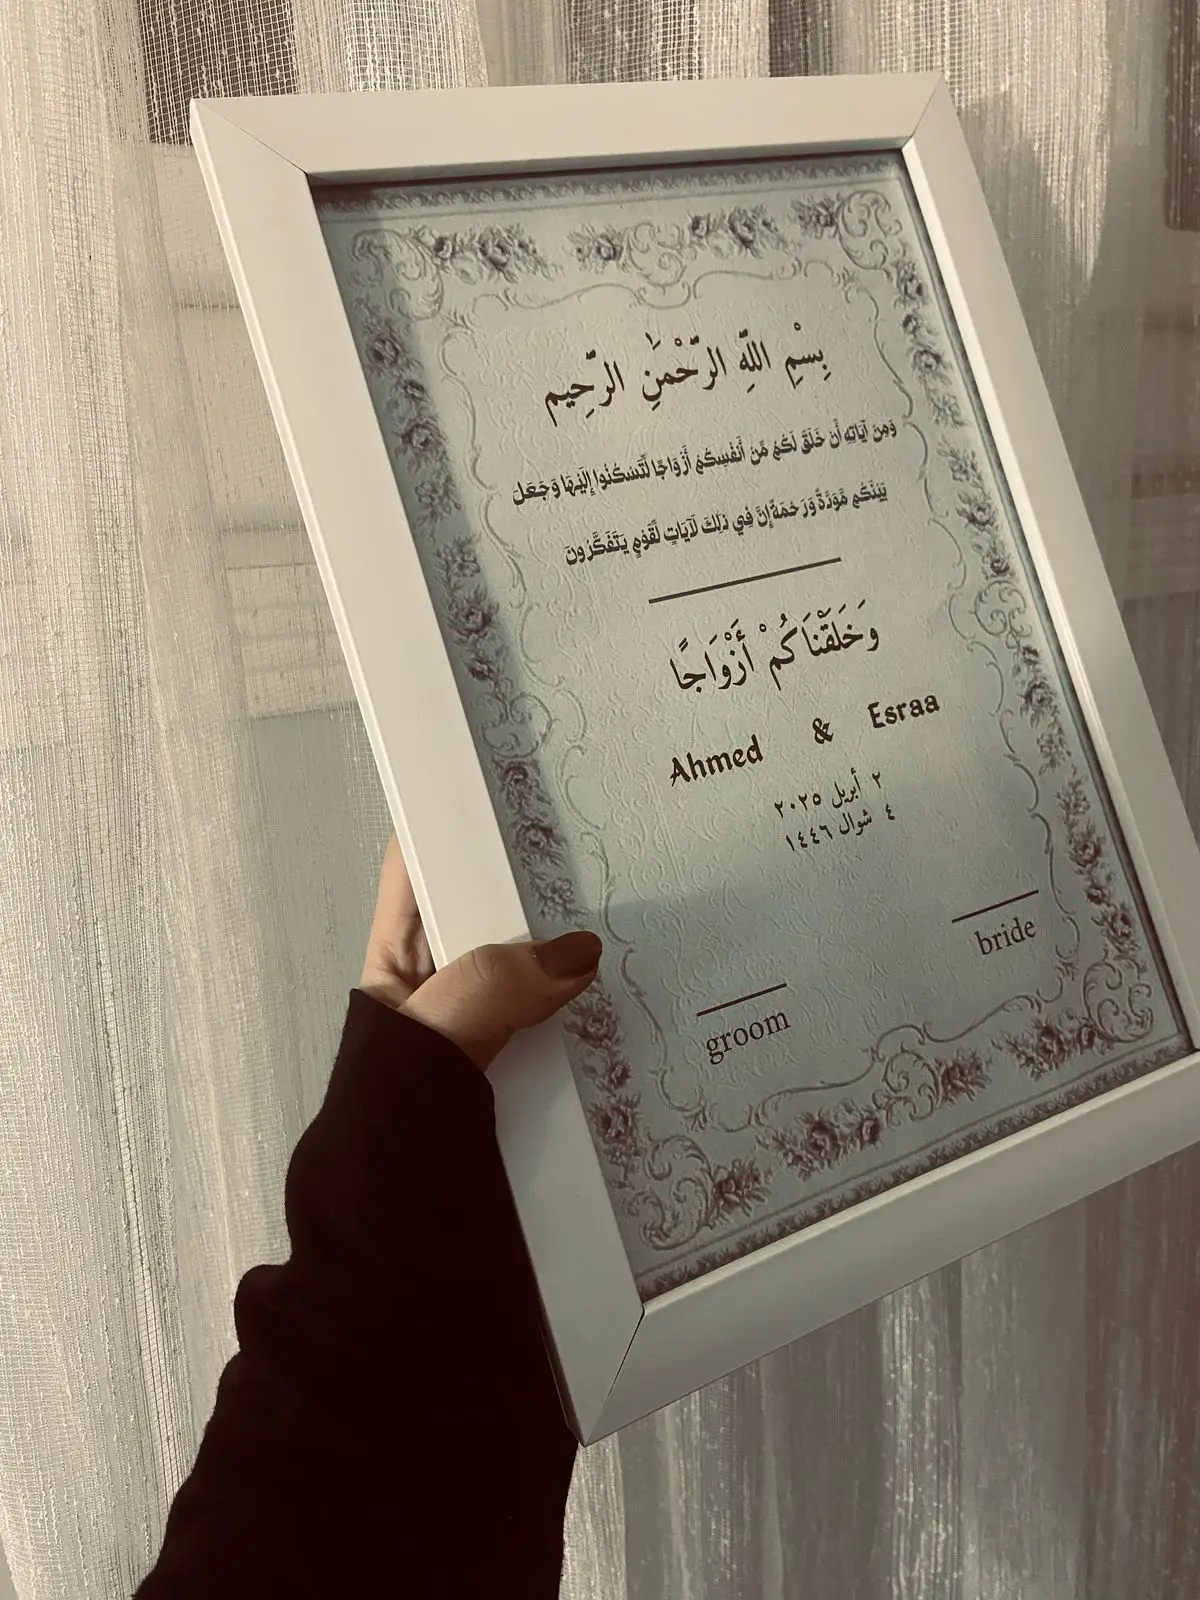 بِسْمِ اللّهِ الرَّحْمَنِ الرَّحِيم
وَمِنْ آيَاتِهِ أَنْ خَلَقَ لَكُم مِّنْ أَنْفُسِكُمْ أَزْوَاجًا لِّتَسْكُنُوا إِلَيْهَا وَجَعَلَ
بَيْنَكُم مَّوَدَّةً وَرَحْمَةً إِنَّ فِي ذَلِكَ لَآيَاتٍ لِّقَوْمٍ يَتَفَكَّرُونَ
وَخَلَقْنَاكُمْ أَزْوَاجًا
Ahmed & Esraa
٢ أبريل ٢٠٢٥
٤ شوال ١٤٤٦
groom bride